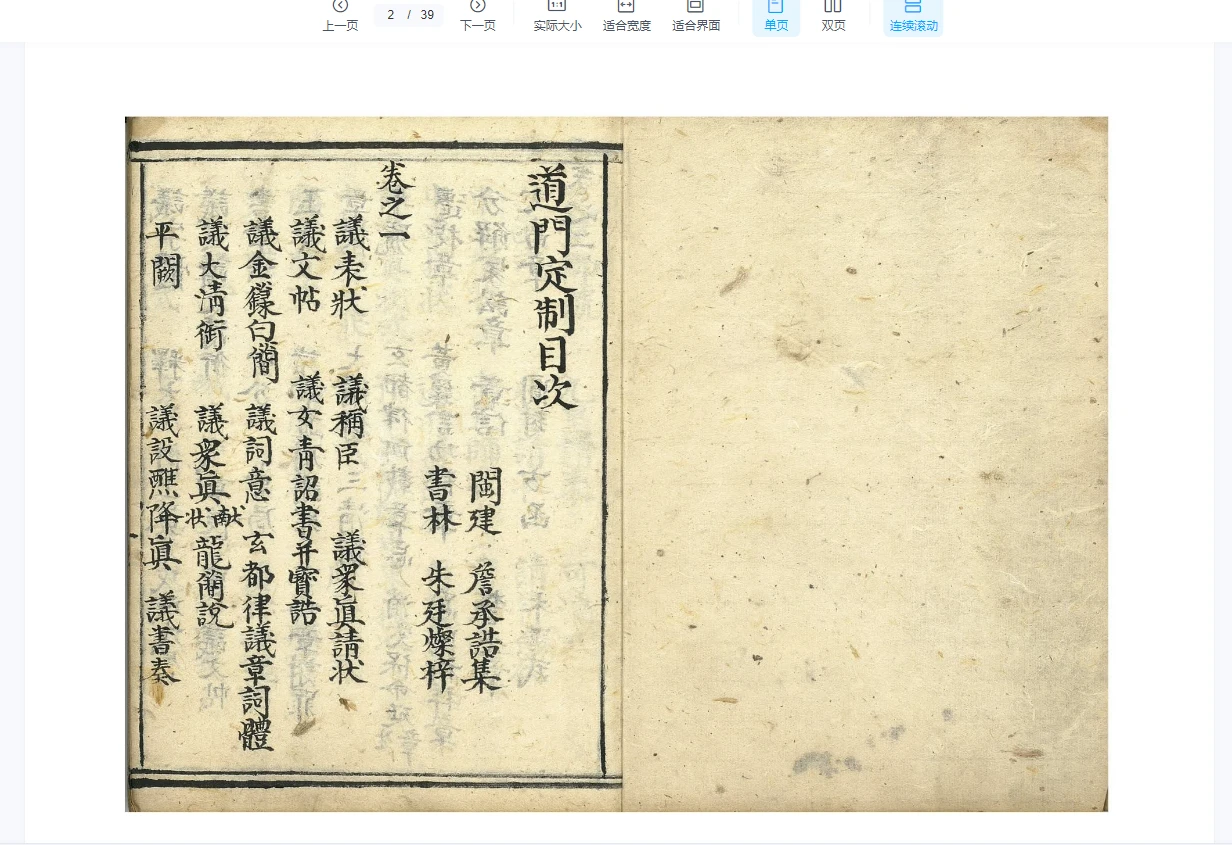 上一页
2 / 39
下一页
1:1
实际大小
适合宽度
适合界面
单页
双页
连续滚动
道門定制目次
閩建 詹承誥集
書林 朱廷燦梓
卷之一
議表狀 議稱臣 議衆眞請狀
議文帖 議女青詔書并寳誥
議金籙白簡 議詞意 玄都律議章詞體
議大清銜 議衆眞献状 龍簡說
平闕 議設醮降眞 議書奏